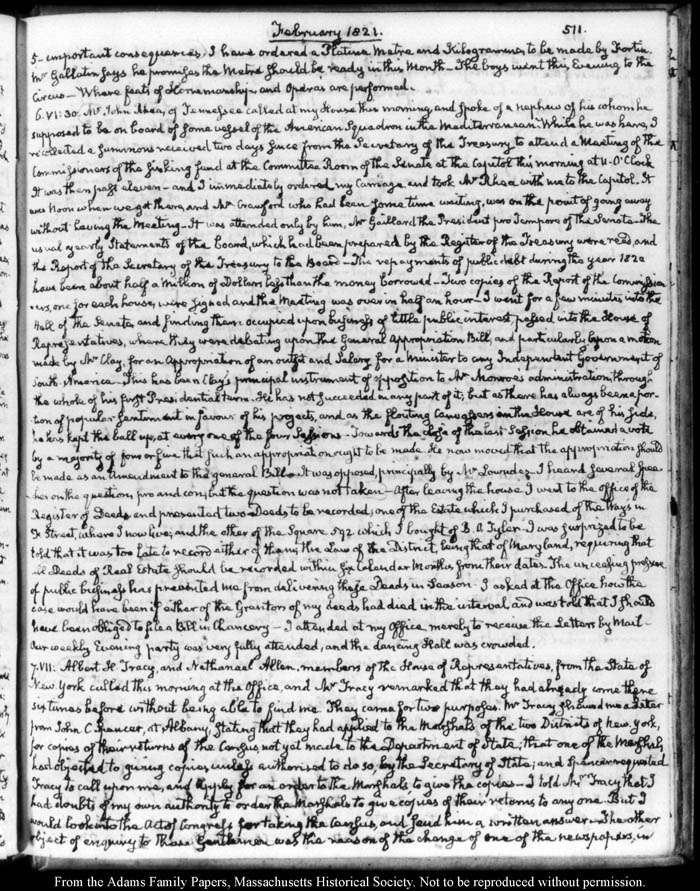 February 1821. 511.
5- important consequences. I have ordered a Platina Metre and Kilogramme, to be made by Fortin.
Mr Gallatin says he promises the Metre should be ready in this Month- The boys went this Evening to the
Circus- Where feats of Horsemanship- and Operas are performed.
6. VI:30. Mr John Rhea, of Tennessee called at my House this morning, and spoke of a nephew of his whom he
supposed to be on board of some vessel of the American Squadron in the Mediterranean. While he was here, I
recollected a summons received two days since from the Secretary of the Treasury to attend a Meeting of the
Commissioners of the sinking fund at the Committee Room of the Senate at the Capitol this morning at 11. O'Clock
It was then past eleven- and I immediately ordered my Carriage and took Mr Rhea with me to the Capitol. It
was Noon when we got there, and Mr Crawford who had been some time waiting, was on the point of going away
without having the Meeting- It was attended only by him, Mr Gaillard the President pro Tempore of the Senate- The
usual yearly Statements of the Board, which had been prepared by the Register of the Treasury were read, and
the Report of the Secretary of the Treasury to the Board- The repayments of public debt during the year 1820
have been about half a Million of Dollars less than the money borrowed- Two copies of the Report of the Commission
ers, one for each house, were signed and the Meeting was over in half an hour- I went for a few minutes into the
Hall of the Senate, and finding them occupied upon business of little public interest passed into the House of
Representatives, where they were debating upon the General Appropriation Bill, and particularly upon a motion
made by Mr Clay, for an Appropriation of an outfit and Salary for a Minister to any Independent Government of
South-America- This has been Clay's principal instrument of opposition to Mr Monroe's administration, through
the whole of his first Presidential term. He has not succeeded in any part of it; but as there has always been a por-
tion of popular sentiment in favour of his projects, and as the floating Canvassers in the House are of his side,
he has kept the ball up, at every one of the four Sessions. Towards the close of the last Session he obtained a vote
by a majority of four or five that such an appropriation ought to be made. He now moved that the appropriation should
be made as an Amendment to the general Bill- It was opposed, principally by Mr Lowndes. I heard several Spee-
ches on the question, pro and con; but the question was not taken- After leaving the house I went to the office of the
Register of Deeds and presented two Deeds to be recorded; one of the Estate which I purchased of the Ways in
F. Street, where I now live; and the other of the Square 592 which I bought of B. O. Tyler- I was surprized to be
told that it was too late to record either of them; the Law of the District, being that of Maryland, requiring that
all Deeds of Real Estate should be recorded within six Calendar Months from their dates. The unceasing pressure
of public business has prevented me from delivering these Deeds in Season- I asked at the Office how the
case would have been if either of the Grantors of my deeds had died in the interval, and was told that I should
have been obliged to file a Bill in Chancery- I attended at my Office, merely to receive the Letters by Mail-
Our weekly Evening party was very fully attended, and the dancing Hall was crowded.
7. VII: Albert H. Tracy, and Nathaniel Allen, members of the House of Representatives, from the State of
New York called this morning at the Office, and Mr Tracy remarked that they had already come there
six times before without being able to find me. They came for two purposes. Mr Tracy shewed me a Letter
from John C Spencer, at Albany, stating that they had applied to the Marshals of the two Districts of New York,
for copies of their returns of the Census not yet made to the Department of State; that one of the Marshals
had objected to giving copies, unless authorised to do so, by the Secretary of State; and Spencer requested
Tracy to call upon me, and apply for an order to the Marshals to give the copies- I told Mr Tracy that I
had doubts of my own authority to order the Marshals to give copies of their returns to any one. But I
would look into the Act of Congress for taking the Census, and send him a written answer- The other
object of enquiry to These Gentlemen was the reason of the change of one of the newspapers, in
From the Adams Family Papers, Massachusetts Historical Society. Not to be reproduced without permission.